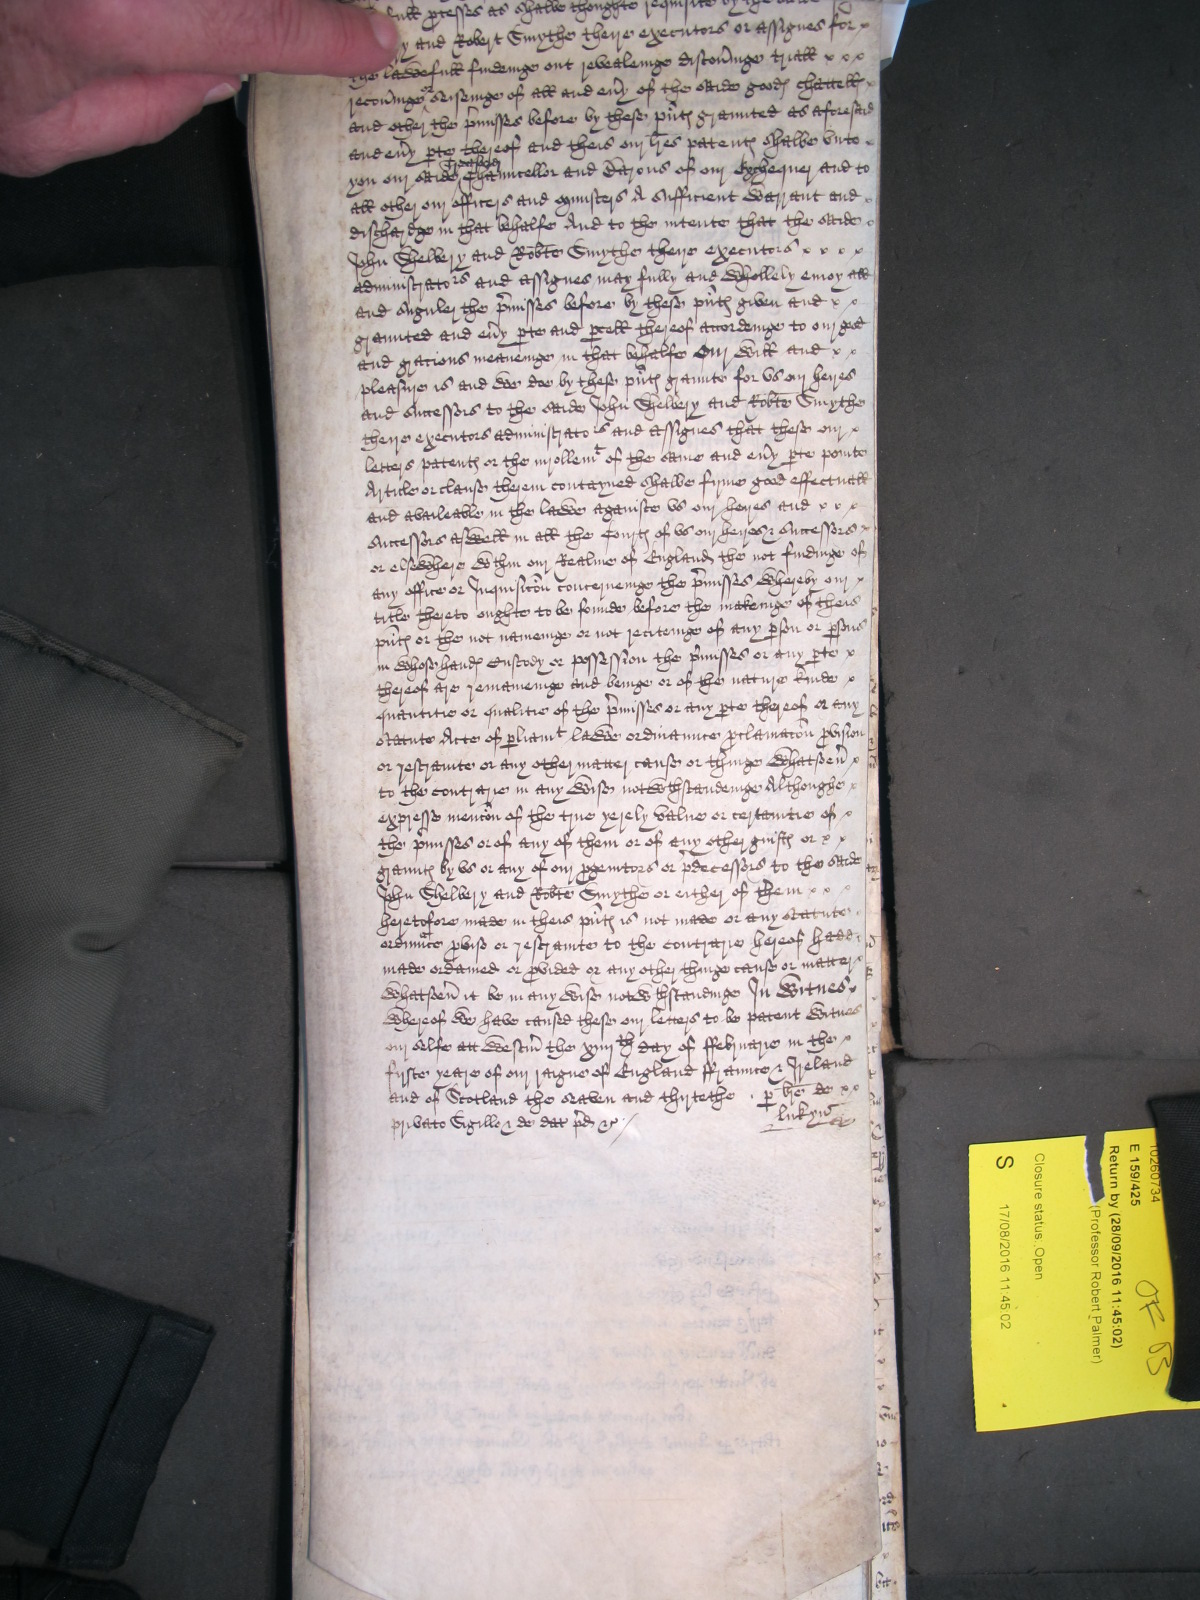 full p̱cesses as shalbe thoughte requisite by the saide
y and Robert Smythe theire executors or assignes for x
the lawefull findeinge out revealeinge discov̄inge triall x x x
recov̄inge or seiseinge of all and eūy of the saide goodꝭ chattellꝭ
and other the p̄misses before by these p̄ntꝭ graunted as aforesaid
and eūy p̱te thereof and theis our l̄res patentꝭ shalbe unto
you our saide Treasorer Chauncellor and Barons of our Exchequer and to
all other our officers and Ministers A sufficient warrant and
dischardge in that behalfe And to the intente that the saide
John Shelbery and Rob̄te Smythe theire executors x x x x
administrators and assignes may fully and Whollely enioy all
and singuler the p̄misses before by these p̄ntꝭ given and x x
graunted and eūy p̱te and p̱cell thereof accordeinge to our good
and gracious meaneinge in that behalfe Our Will and x x
pleasure is and we doe by these p̄ntꝭ graunte for us our heires
and successors to the saide John Shelbery and Rob̄te Smythe
theire executors administrators and assignes that these our x
letters patentꝭ or the inrollemt of the same and eūy p̱te pointe
Article or clause therein contayned shalbe firme good effectuall
and availeable in the lawe againste us our heires and x x x
successors aswell in all the Courtꝭ of us our heires & successors x
or elsewhere wthin our Realme of England the not findinge of
any office or Inquisic̄on concerneinge the p̄misses whereby our x
title thereto oughte to be founde before the makeinge of theis
p̄ntꝭ or the not nameinge or not reciteinge of any p̱son or p̱sons
in whose handꝭ Custody or possession the p̄misses or any p̱te x
thereof are remaineinge and beinge or of the nature kinde x
quantitie or qualitie of the p̄misses or any p̱te thereof or any
statute Acte of p̱liamt lawe ordinaunce p̱clamac̄on p̱vision
or restrainte or any other matter cause or thinge whatsoeū x
to the contrarie in any wise notwthstandeinge Althoughe x
expresse menc̄on of the true yerely value or certaintie of x
the p̄misses or of any of them or of any other guiftꝭ or x x
grauntꝭ by us or any of our p̱genitors or p̄decessors to the saide
John Shelbery and Rob̄te Smythe or either of them x x x
heretofore made in theis p̄ntꝭ is not made or any statute
ordinaunce p̱viso or restrainte to the contrarie hereof hadd
made ordained or p̱vided or any other thinge cause or matter x
whatsoeū it be in any wise notwthstandinge In Witnes
whereof we have caused these our letters to be patent Witnes
our selfe att Westm̄ the xiiiith day of ffebruarie in the x
firste yeare of our raigne of England ffraunce & Ireland
and of Scotland the seaven and thirtethe . p̱ br̄e de x x
privato Sigillo & de dat p̄d &c Lukyn
10260734
E 159/425
Return by (28/09/2016 11:45:02)
(Professor Robert Palmer)
Closure status: Open
S 17/08/2016 11:45:02